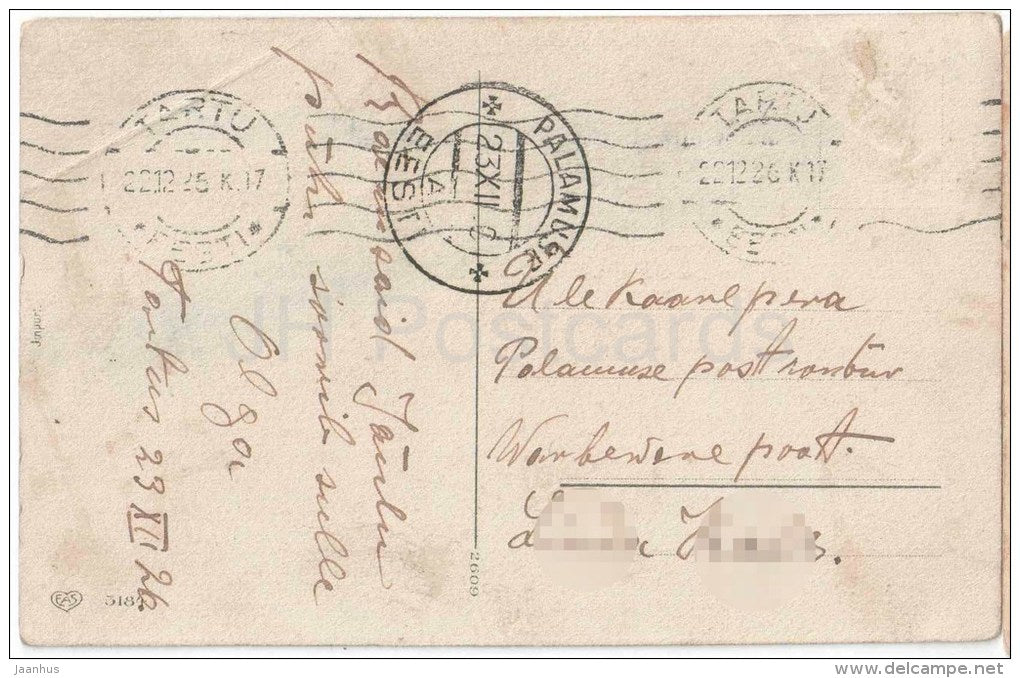 TARTU
22.12.26 K.17
* EESTI *
PALAMUSE
23 XII 26
A
EESTI
TARTU
22.12.26 K.17
EESTI
Roomsaid Jõulu
pühi soovib sulle
Olga
Tartus 23 XII 26
Ule Kaarepera
Palamuse postkontor
Warbewere poost.
EAS
5184
2609
JH Postcards
jaanhus
www.delcampe.net